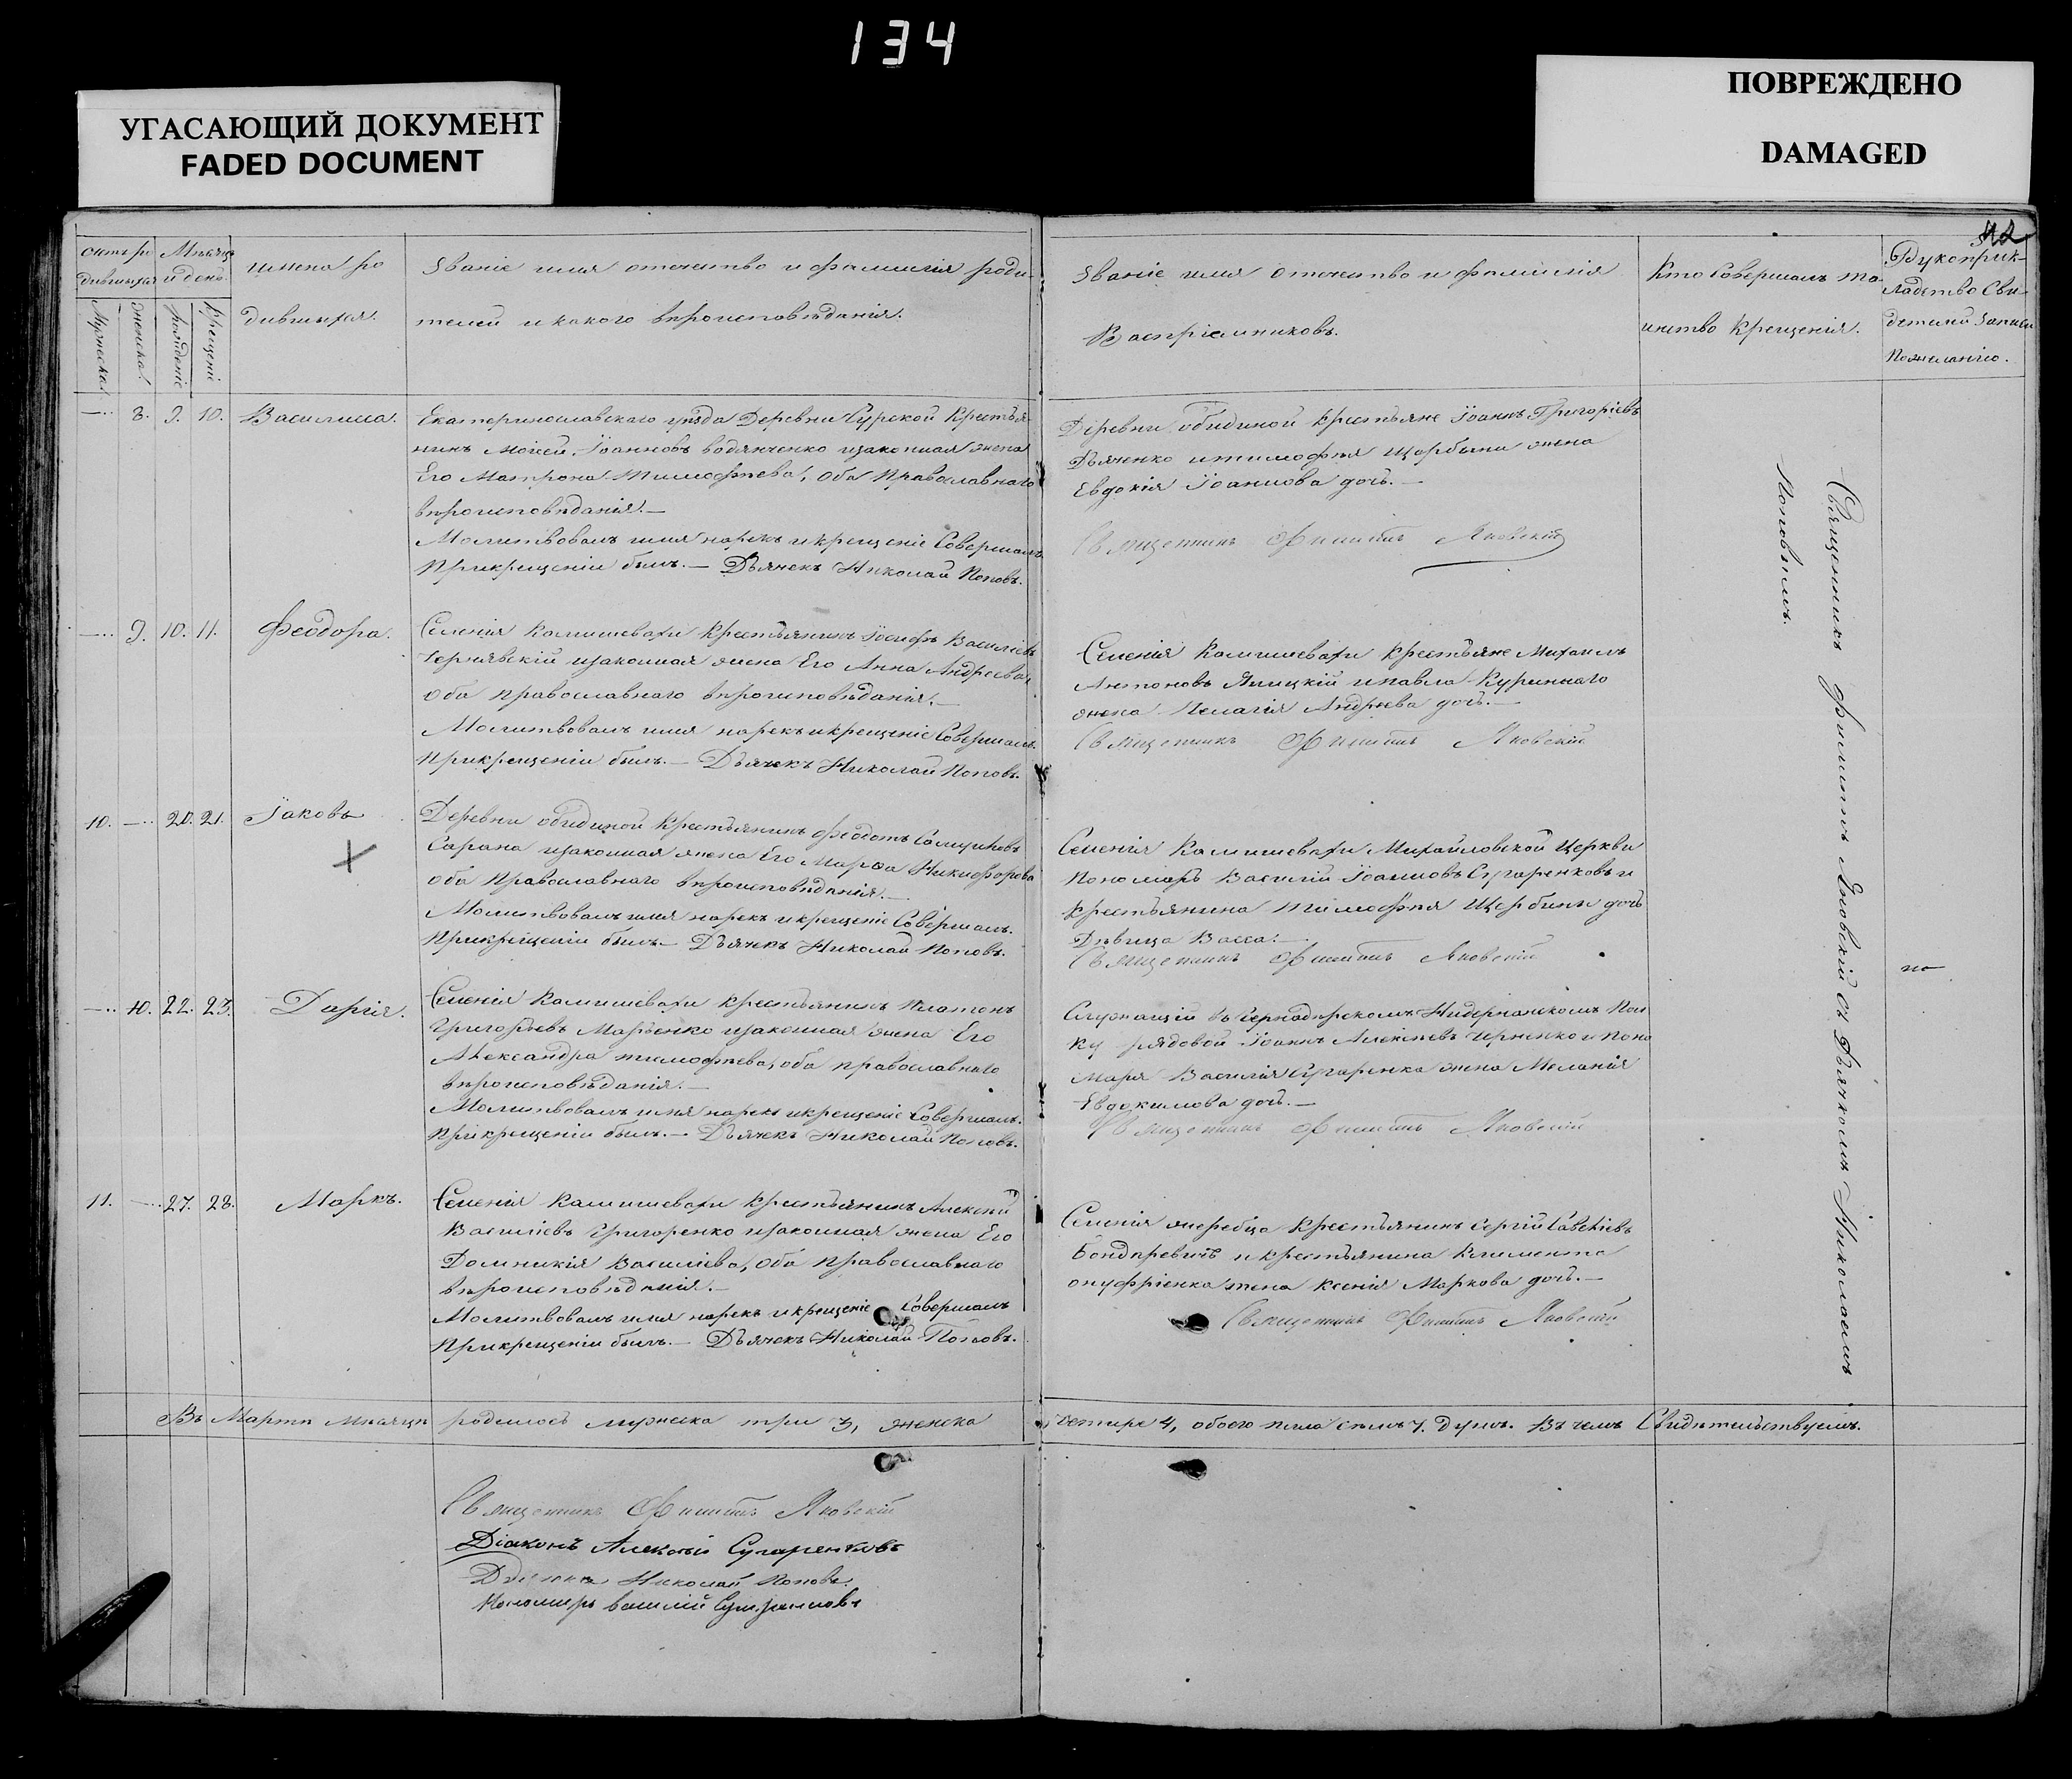 134
УГАСАЮЩИЙ ДОКУМЕНТ
FADED DOCUMENT
ПОВРЕЖДЕНО
DAMAGED
42
Мѣсяцъ
и день.
имена ро
дившихся.
Званіе имя отечество и фамилія роди-
телей и какого вѣроисповѣданія.
Мужеска
женска
рожденіе
крещеніе
Званіе имя отечество и фамилія
Воспріемниковъ.
Кто Совершалъ та-
инство Крещенія.
Рукоприк-
ладство Сви-
детелей записи
Пожеланію.
—.. 8. 9. 10. Василиса.
Екатеринославскаго уѣзда Деревни Сурской Крестья-
нинъ Моисей Іоанновъ Водянченко изаконная жена
Его Матрона Тимофѣева, Оба Православнаго
вѣроисповѣданія.—
Молитвовалъ имя нарекъ икрещеніе Совершалъ
Прикрещеніи былъ.— Дьячекъ Николай Поповъ.
Деревни обидиной крестьяне Іоаннъ Григоріевъ
Дьяченко итимофѣя Щербины жена
Евдокія Іоаннова дочь.—
Священникъ Филиппъ Яновскій
—.. 9. 10. 11. Феодора.
Селенія Камишевахи Крестьянинъ Іосифъ Василіевъ
Чернявскій изаконная жена Его Анна Андреева
Оба православнаго вѣроисповѣданія.—
Молитвовалъ имя нарекъ икрещеніе Совершалъ.
Прикрещеніи былъ.— Дьячекъ Николай Поповъ.
Селенія Камишевахи крестьяне Михаилъ
Антоновъ Ялицкій ипавла Куриннаго
жена Пелагія Андрѣева дочь.—
Священникъ Филиппъ Яновскій
10. —.. 20. 21. Іаковъ
Деревни обидиной Крестьянинъ Феодотъ
Сарана изаконная жена Его Марфа Никифорова
Оба Православнаго вѣроисповѣданія.—
Молитвовалъ имя нарекъ икрещеніе Совершалъ.
Прикрещеніи былъ.— Дьячекъ Николай Поповъ.
Селенія Камишевахи Михайловской Церкви
Пономарь Василій Іоанновъ Сугаренковъ и
крестьянина Тимофѣя Щербины дочь
Дѣвица Васса.—
Священникъ Филиппъ Яновскій
—.. 10. 22. 23. Дарія.
Селенія Камишевахи крестьянинъ Платонъ
Григорьевъ Марченко изаконная жена Его
Александра тимофѣева, оба православнаго
вѣроисповѣданія.—
Молитвовалъ имя нарекъ икрещеніе Совершалъ.
Прикрещеніи былъ.— Дьячекъ Николай Поповъ.
Служащій въ Нидерланскомъ Пол
ку рядовой Іоаннъ Алексіевъ Черненко и поно
маря Василія Сугаренка жена Меланія
Евдокимова дочь.—
Священникъ Филиппъ Яновскій
11. —.. 27. 28. Маркъ.
Селенія Камишевахи крестьянинъ Алексій
Василіевъ Григоренко изаконная жена Его
Домникія Василіева, Оба Православнаго
вѣроисповѣданія.—
Молитвовалъ имя нарекъ икрещеніе Совершалъ
Прикрещеніи былъ.— Дьячекъ Николай Поповъ.
Селенія жеребца Крестьянинъ Сергій Савеліевъ
и крестьянина Климента
онуфріенка жена Ксенія Маркова дочь.—
Священникъ Филиппъ Яновскій
Священникъ Филиппъ Яновскій съ Дьячкомъ Николаемъ
Поповымъ.
Въ Мартѣ Мѣсяцѣ родилось мужеска три 3, женска четыре 4, обоего пола семь 7. душъ. Въ чемъ Свидѣтельствуемъ.
Священникъ Филиппъ Яновскій
Діаконъ Алексѣй Сугаренковъ
Дьячекъ Николай Поповъ.
Пономарь Василій Сугаренковъ